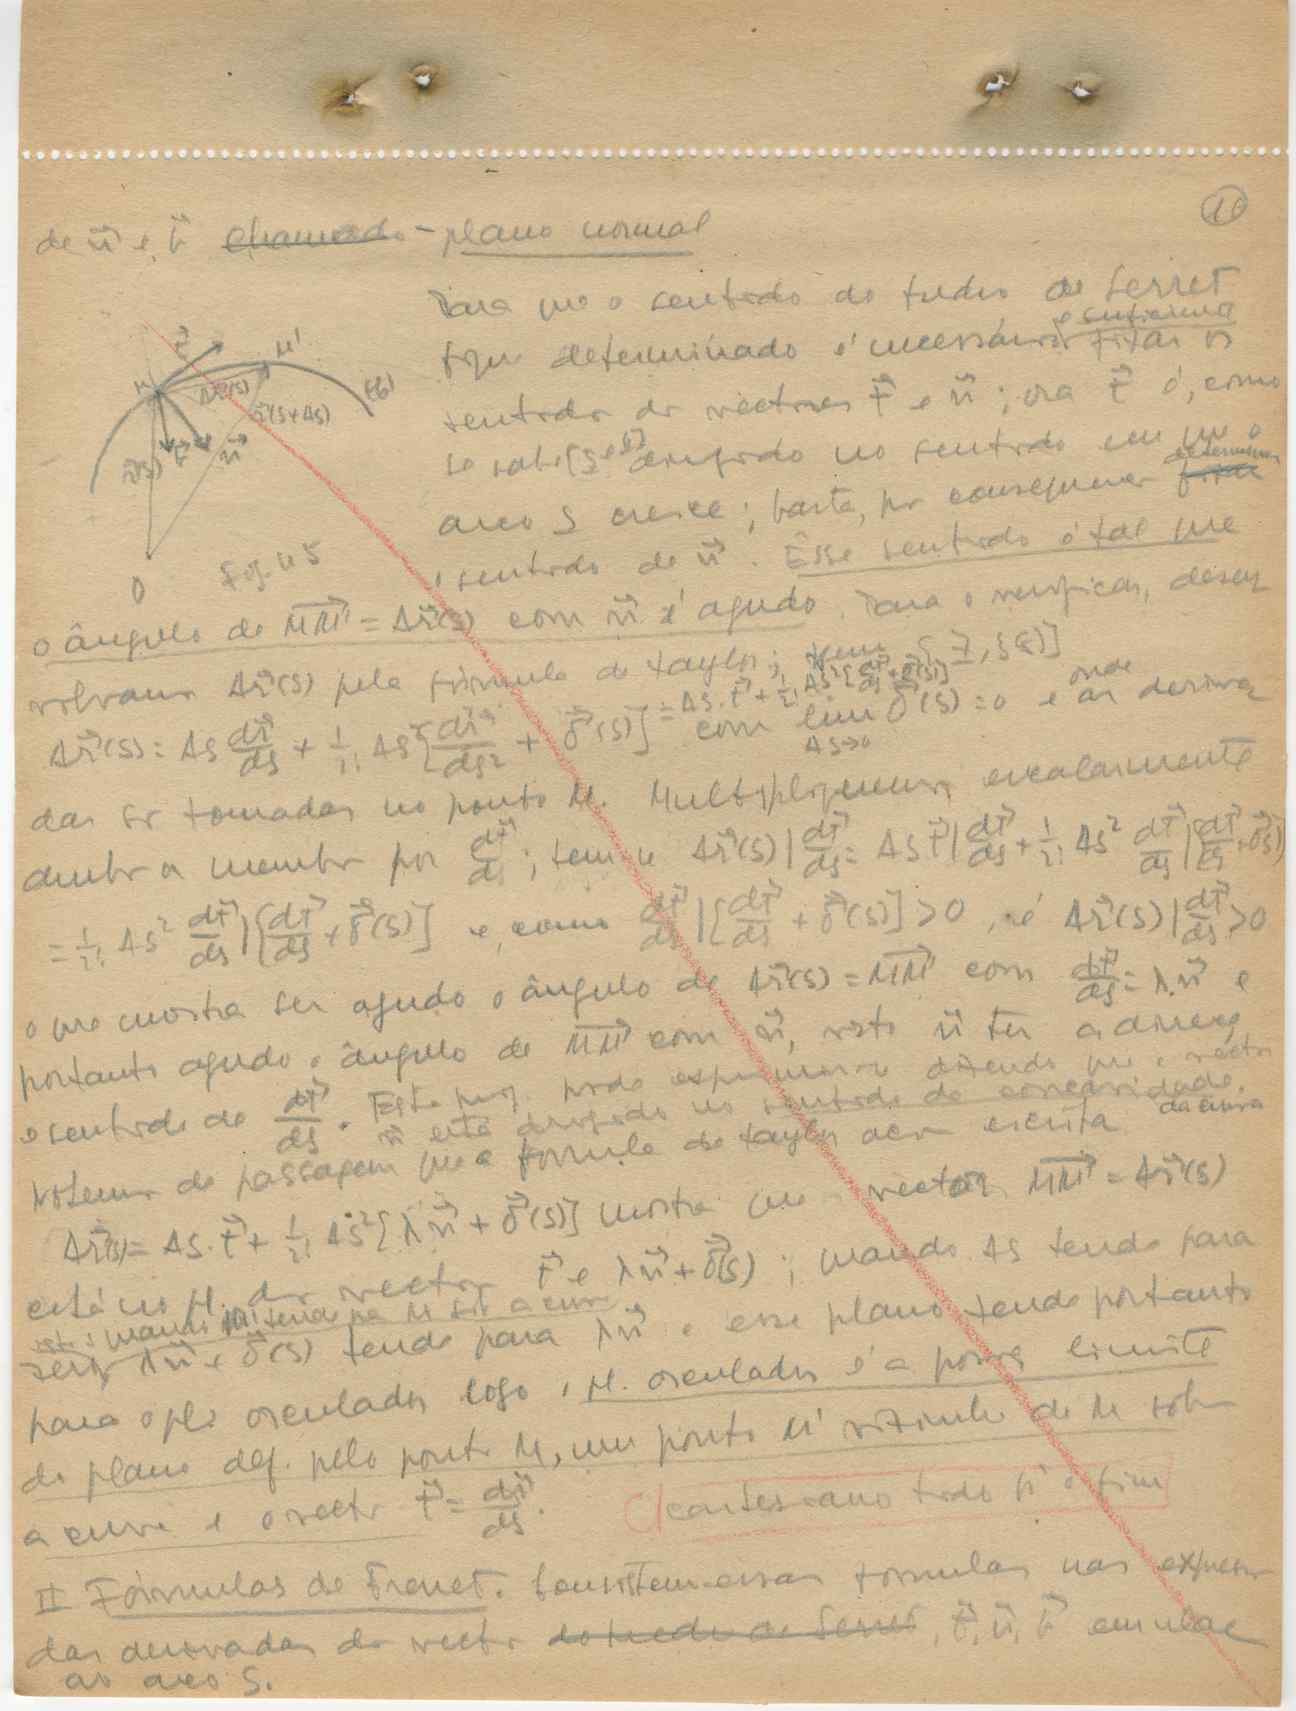 10
de n⃗ e b⃗ chamado - plano normal
Para que o sentido do triedro de Serret
fique determinado é necessário e suficiente fixar os
sentidos dos vectores t⃗ e n⃗; ora t⃗ é, como
se sabe dirigido no sentido em que o
arco s cresce; basta, por conseguinte fixar determinar
o sentido de n⃗. Êsse sentido é tal que
t⃗ M M' (C)
Δr⃗(s) r⃗(s+Δs)
r⃗(s) b⃗ n⃗
O Fig. nº 5
o ângulo de MM'⃗ = Δr⃗(s) com n⃗ é agudo. Para o verificar, desen
volvamos Δr⃗(s) pela fórmula de Taylor; tem
= Δs.t⃗ + 1/2! Δs²[dt⃗/ds + δ⃗(s)]
Δr⃗(s) = Δs dr⃗/ds + 1/2! Δs²[d²r⃗/ds² + δ⃗(s)] com lim δ⃗(s) = 0 e onde as deriva
Δs→0
das são tomadas no ponto M. Multipliquemos escalarmente
ambos os membros por dt⃗/ds; tem-se Δr⃗(s)|dt⃗/ds = Δs t⃗|dt⃗/ds + 1/2! Δs² dt⃗/ds|[dt⃗/ds + δ⃗(s)]
= 1/2! Δs² dt⃗/ds|[dt⃗/ds + δ⃗(s)] e, como dt⃗/ds|[dt⃗/ds + δ⃗(s)] > 0, é Δr⃗(s)|dt⃗/ds > 0
o que mostra ser agudo o ângulo de Δr⃗(s) = MM'⃗ com dt⃗/ds = λn⃗ e
portanto agudo o ângulo de MM'⃗ com n⃗, visto n⃗ ter a direcç
e sentido de dt⃗/ds. Esta prop. pode exprimir-se dizendo que o vector
n⃗ está dirigido no sentido da concavidade da curva
Notemos de passagem que a fórmula de Taylor acima escrita
Δr⃗(s) = Δs.t⃗ + 1/2! Δs²[λn⃗ + δ⃗(s)] mostra que o vector MM'⃗ = Δr⃗(s)
está no pl. dos vectores t⃗ e λn⃗ + δ⃗(s); quando Δs tende para
isto é: quando M' tende para M sobre a curva
zero, λn⃗ + δ⃗(s) tende para λn⃗ e esse plano tende portanto
para o pl. osculador logo o pl. osculador é a posiç limite
do plano def. pelo ponto M, um ponto M' vizinho de M sobre
a curva e o vector t⃗ = dr⃗/ds.
C/ cartesiano todo p' o fim
II Fórmulas de Frenet. Consistem essas fórmulas nas expressões
das derivadas dos vectores do triedro de Serret, t⃗, n⃗, b⃗ em relaç
ao arco s.